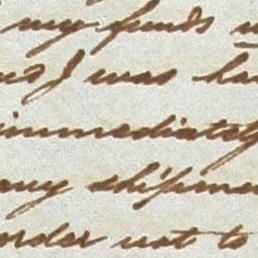 my funds
I was
immediately
any shipme
order not to